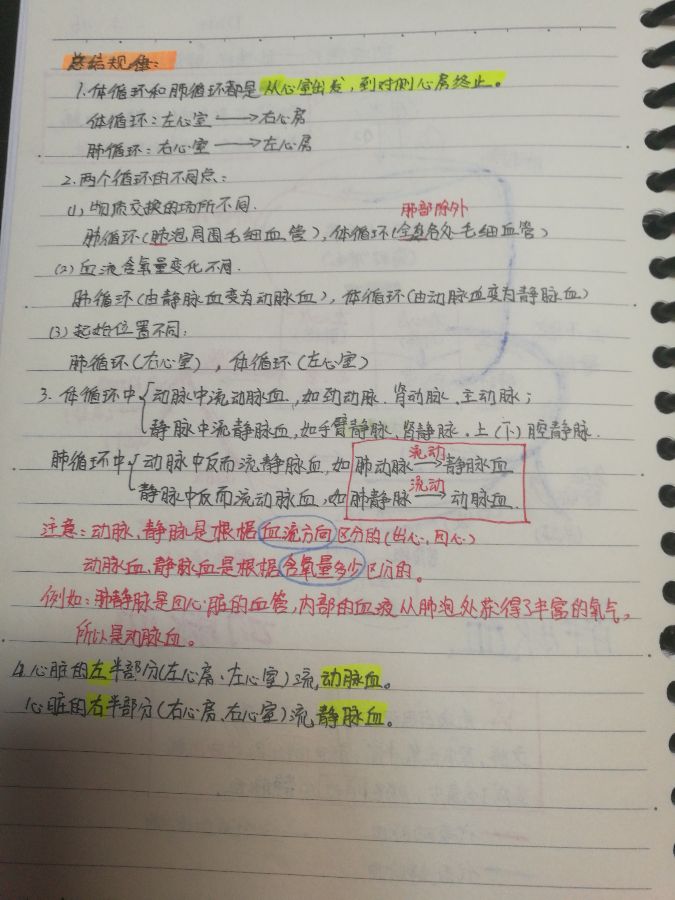 总结规律:
1.体循环和肺循环都是从心室出发,到对侧心房终止。
体循环:左心室⟶右心房
肺循环:右心室⟶左心房
2.两个循环的不同点:
(1)物质交换的场所不同.
肺部除外
肺循环(肺泡周围毛细血管),体循环(全身各处毛细血管)
(2)血液含氧量变化不同.
肺循环(由静脉血变为动脉血),体循环(由动脉血变为静脉血)
(3)起始位置不同:
肺循环(右心室),体循环(左心室)
3.体循环中{动脉中流动脉血,如颈动脉、肾动脉、主动脉;
静脉中流静脉血,如手臂静脉、肾静脉、上(下)腔静脉.
肺循环中{动脉中反而流静脉血,如肺动脉 流动⟶静脉血
静脉中反而流动脉血,如肺静脉 流动⟶动脉血.
注意:动脉、静脉是根据血流方向区分的(出心、回心)
动脉血、静脉血是根据含氧量多少区分的。
例如:肺静脉是回心脏的血管,内部的血液从肺泡处获得了丰富的氧气,
所以是动脉血。
4.心脏的左半部分(左心房、左心室)流动脉血。
心脏的右半部分(右心房、右心室)流静脉血。